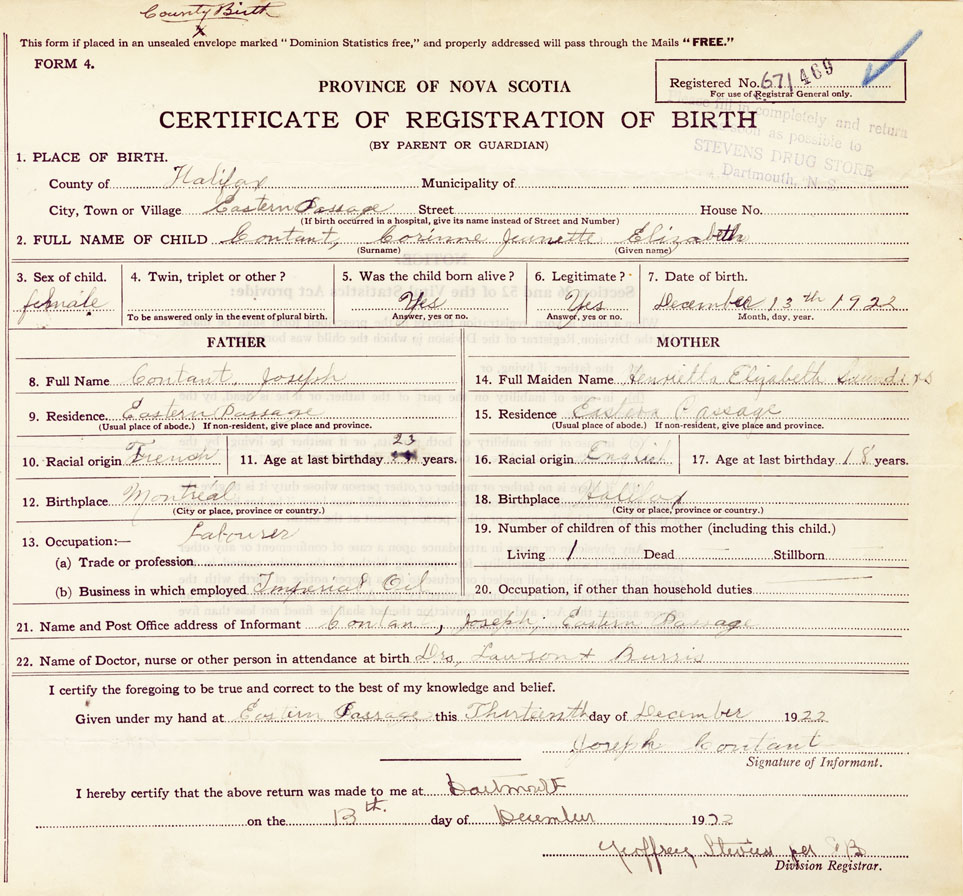 County Birth
x
This form if placed in an unsealed envelope marked "Dominion Statistics free," and properly addressed will pass through the Mails "FREE."
FORM 4.
PROVINCE OF NOVA SCOTIA
Registered No. 671469
For use of Registrar General only.
CERTIFICATE OF REGISTRATION OF BIRTH
(BY PARENT OR GUARDIAN)
fill in completely and return
as soon as possible to
STEVENS DRUG STORE
Dartmouth, N. S.
1. PLACE OF BIRTH.
County of Halifax Municipality of
City, Town or Village Eastern Passage Street House No.
(If birth occurred in a hospital, give its name instead of Street and Number)
2. FULL NAME OF CHILD Contant, Corinne Jeanette Elizabeth
(Surname) (Given name)
3. Sex of child. 4. Twin, triplet or other? 5. Was the child born alive? 6. Legitimate? 7. Date of birth.
female Yes Yes December 13th 1922
To be answered only in the event of plural birth. Answer, yes or no. Answer, yes or no. Month, day, year.
FATHER MOTHER
8. Full Name Contant, Joseph 14. Full Maiden Name Henrietta Elizabeth
9. Residence. Eastern Passage 15. Residence Eastern Passage
(Usual place of abode.) If non-resident, give place and province. (Usual place of abode.) If non-resident, give place and province.
10. Racial origin French 11. Age at last birthday 23 years. 16. Racial origin English 17. Age at last birthday 18 years.
12. Birthplace Montreal 18. Birthplace Halifax
(City or place, province or country.) (City or place, province or country.)
13. Occupation:— Labourer 19. Number of children of this mother (including this child.)
(a) Trade or profession Living 1 Dead — Stillborn —
(b) Business in which employed Imperial Oil 20. Occupation, if other than household duties —
21. Name and Post Office address of Informant Contant, Joseph, Eastern Passage
22. Name of Doctor, nurse or other person in attendance at birth Drs, Lawson + Burris
I certify the foregoing to be true and correct to the best of my knowledge and belief.
Given under my hand at Eastern Passage this Thirteenth day of December 1922
Joseph Contant
Signature of Informant.
I hereby certify that the above return was made to me at Dartmouth
on the 13th. day of December 1922
Geoffrey Stevens per
Division Registrar.